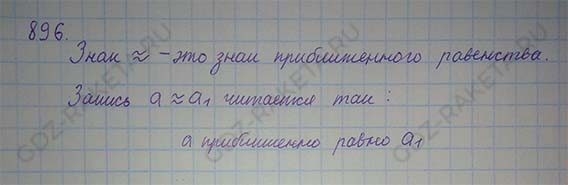 896.
Знак ≈ - это знак приближенного равенства.
Запись a ≈ a₁ читается так:
a приближенно равно a₁
GDZ-RAKETA.RU